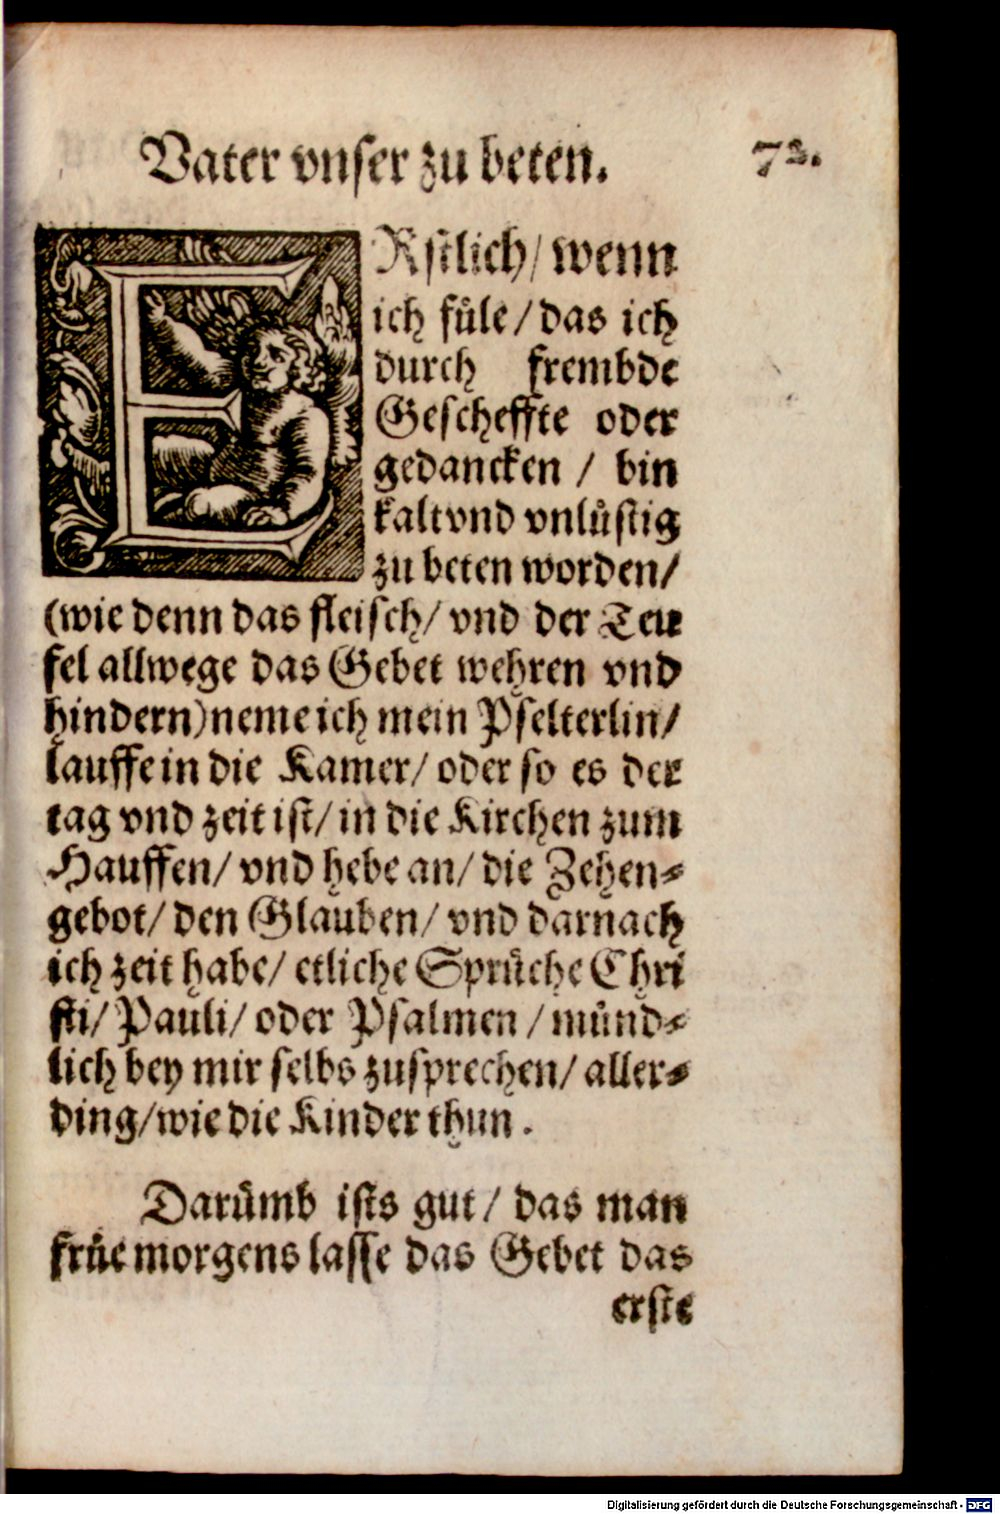 Vater vnser zu beten. 72.
ERstlich/ wenn
ich fuͤle/ das ich
durch frembde
Gescheffte oder
gedancken / bin
kalt vnd vnluͤstig
zu beten worden/
(wie denn das fleisch/ vnd der Teu
fel allwege das Gebet wehren vnd
hindern) neme ich mein Pselterlin/
lauffe in die Kamer/ oder so es der
tag vnd zeit ist/ in die Kirchen zum
Hauffen/ vnd hebe an/ die Zehen⸗
gebot/ den Glauben/ vnd darnach
ich zeit habe/ etliche Spruͤche Chri
sti/ Pauli/ oder Psalmen / muͤnd⸗
lich bey mir selbs zusprechen/ aller⸗
ding/ wie die Kinder thun.
Daruͤmb ists gut/ das man
fruͤe morgens lasse das Gebet das
erste
Digitalisierung gefördert durch die Deutsche Forschungsgemeinschaft - DFG